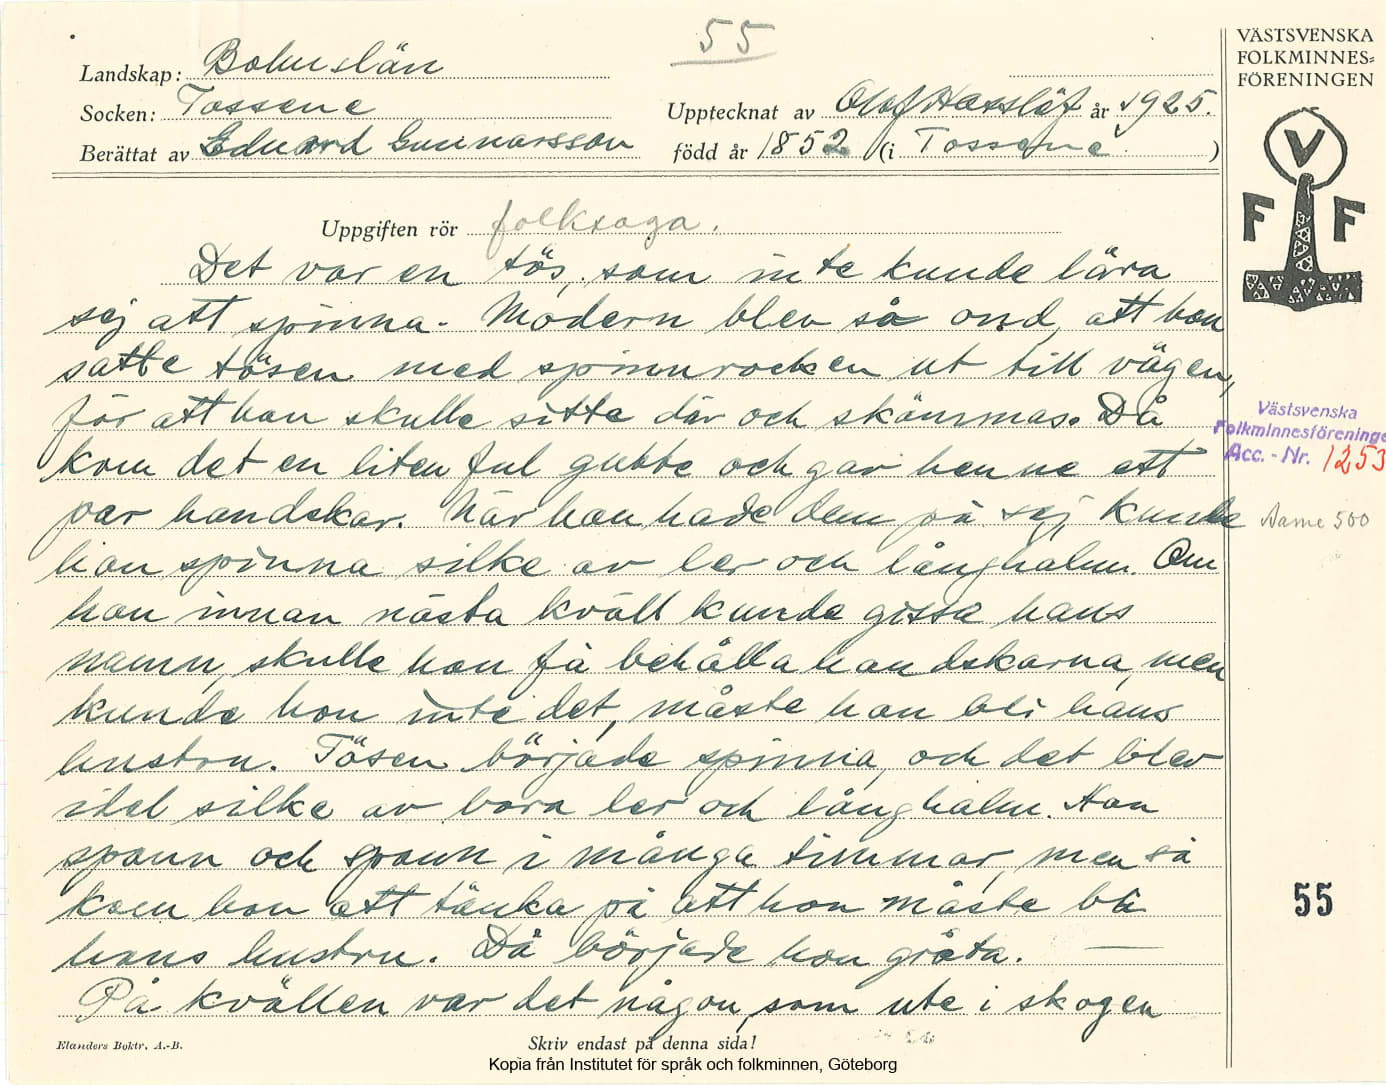 55
VÄSTSVENSKA
FOLKMINNES=
FÖRENINGEN
Landskap: Bohuslän
Socken: Tossene
Upptecknat av Olof Hasslöf år 1925.
Berättat av Eduard Gunnarsson född år 1852 (i Tossene)
V
F F
Uppgiften rör folksaga.
Det var en tös, som inte kunde lära
sej att spinna. Modern blev så ond, att hon
satte tösen med spinnrocken ut till vägen,
för att hon skulle sitta där och skämmas. Då
kom det en liten ful gubbe och gav henne ett
par handskar. När hon hade dem på sej kunde
hon spinna silke av ler och långhalm. Om
hon innan nästa kväll kunde gissa hans
namn, skulle hon få behålla handskarna, men
kunde hon inte det, måste hon bli hans
hustru. Tösen började spinna, och det blev
idel silke av bara ler och långhalm. Hon
spann och spann i många timmar, men så
kom hon att tänka på att hon måste bli
hans hustru. Då började hon gråta. —
På kvällen var det någon, som ute i skogen
Västsvenska
Folkminnesföreninge
Acc. - Nr. 1253
Aarne 500
55
Elanders Boktr. A.-B.
Skriv endast på denna sida!
Kopia från Institutet för språk och folkminnen, Göteborg